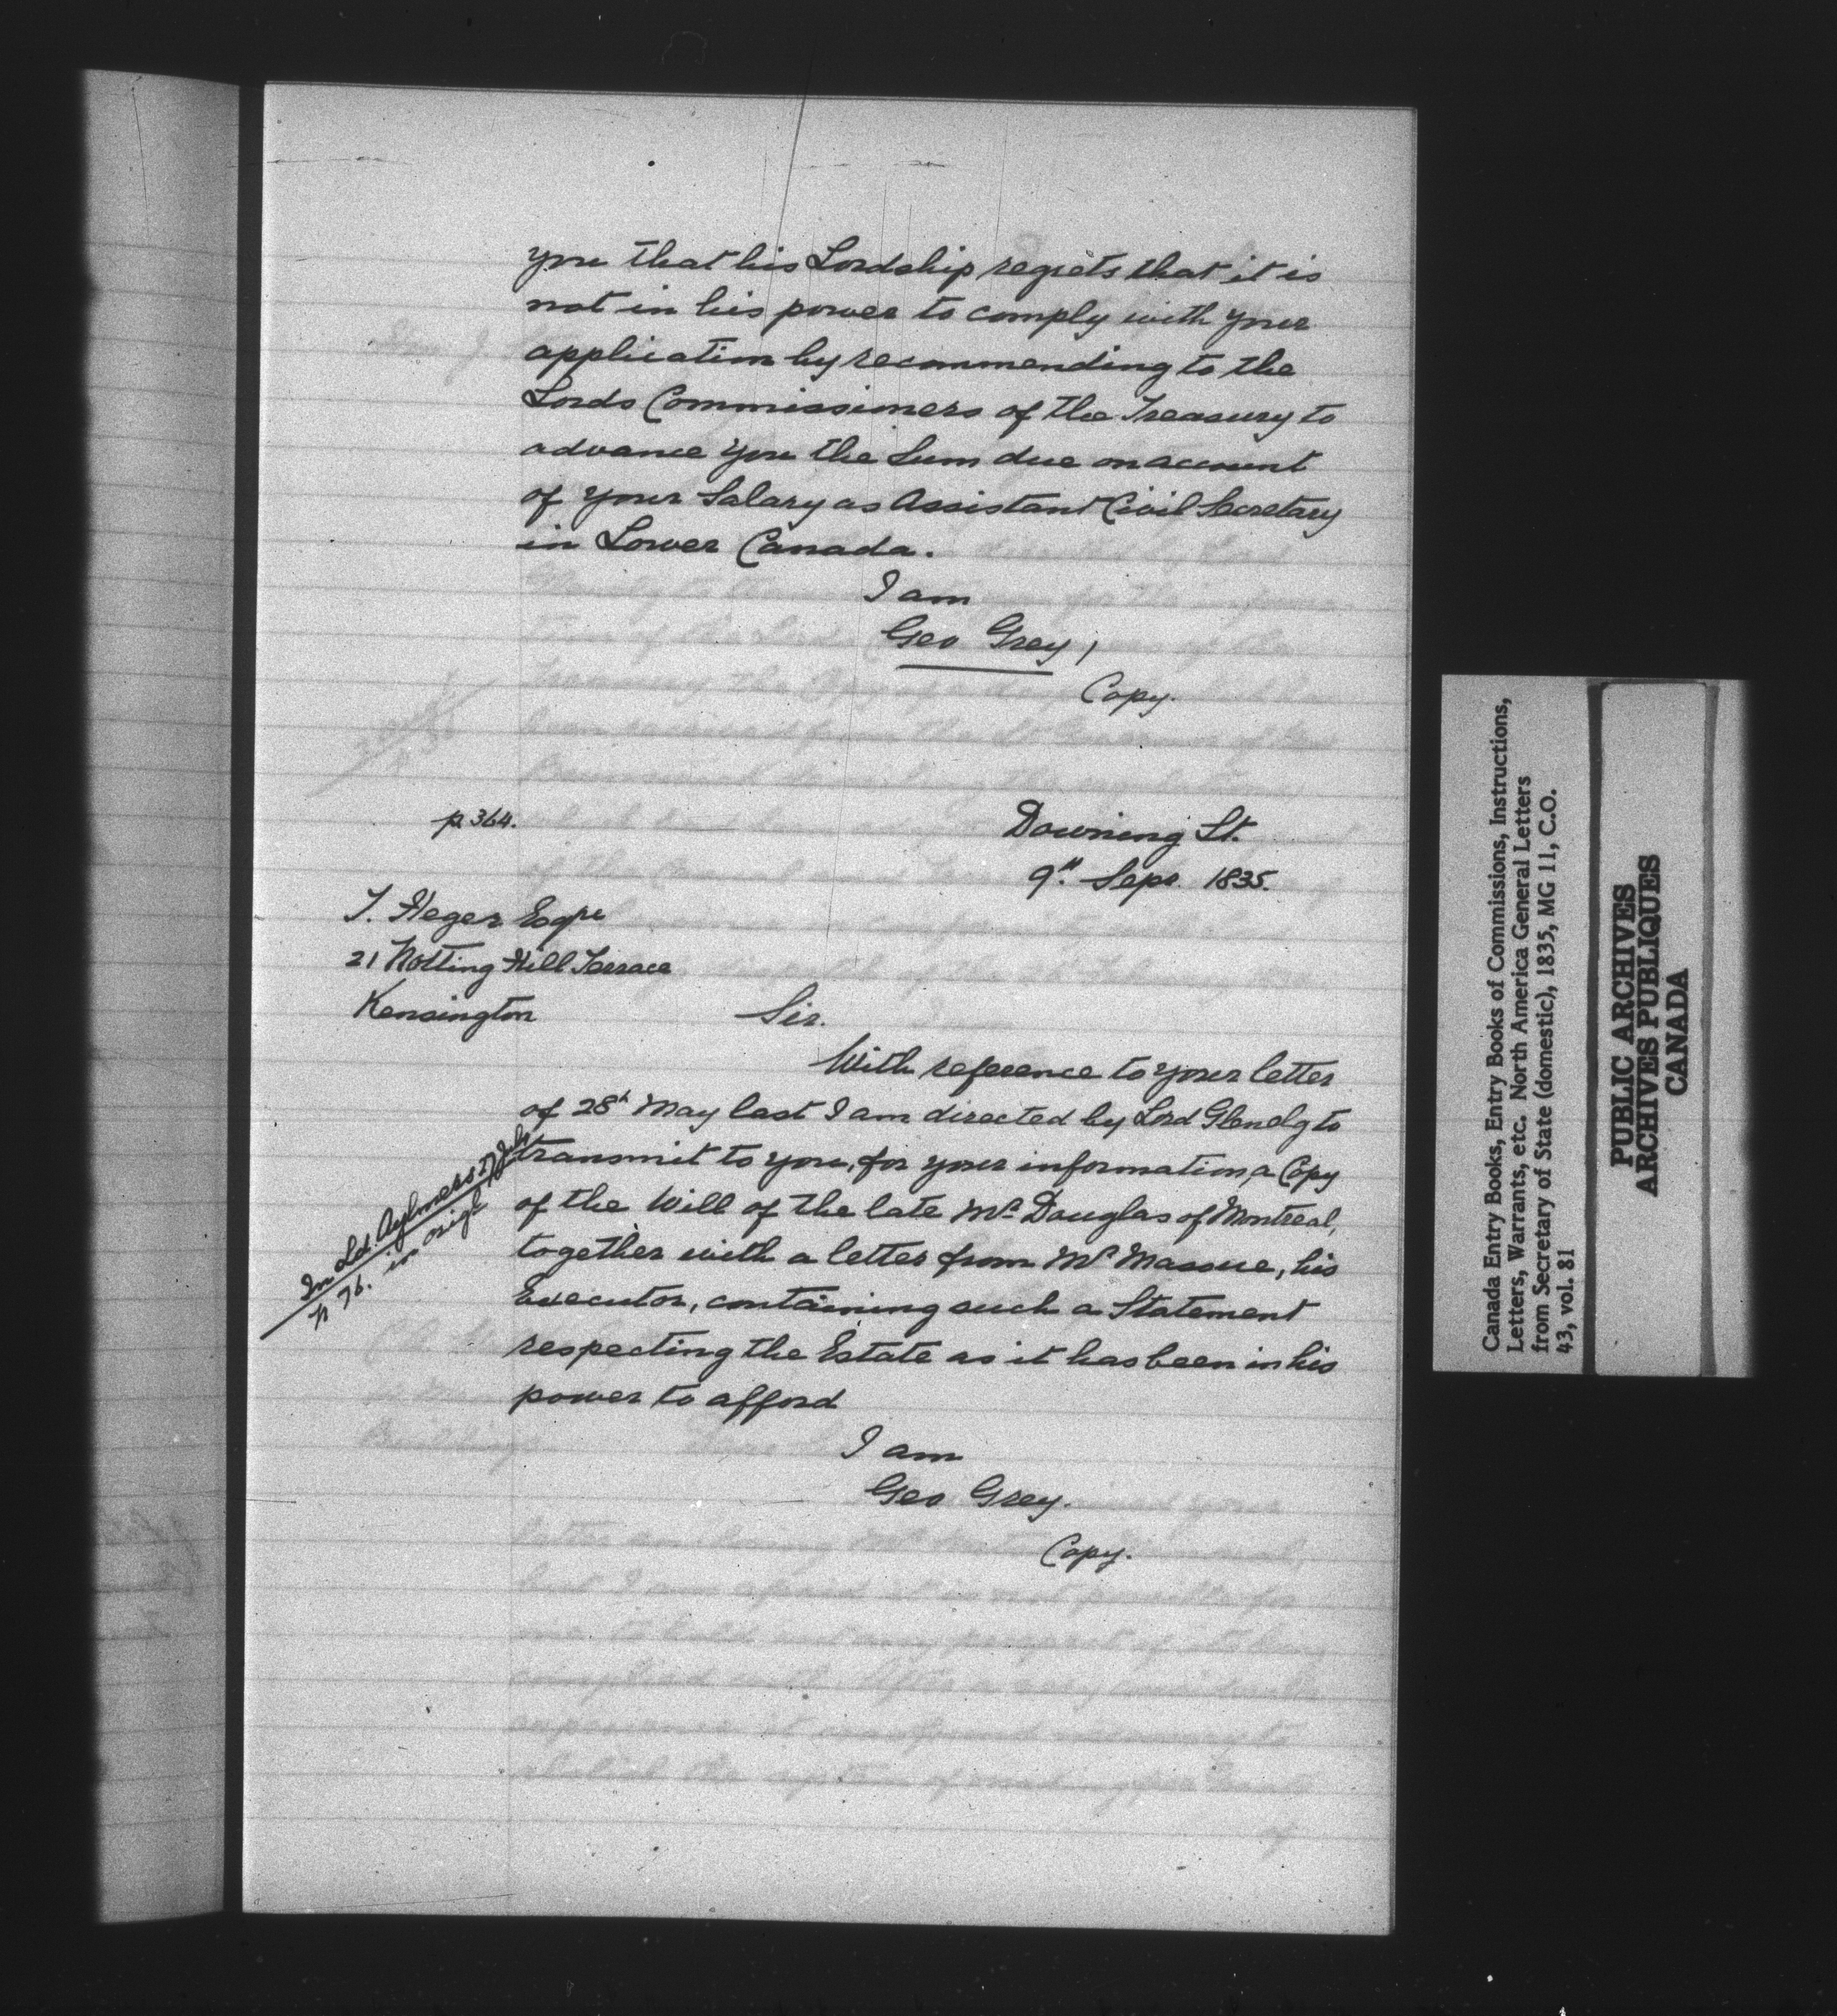 you that his Lordship regrets that it is
not in his power to comply with your
application by recommending to the
Lords Commissioners of the Treasury to
advance you the Sum due on account
of your Salary as Assistant Civil Secretary
in Lower Canada.
I am
Geo Grey,
Copy.
p. 364.
Downing St.
9th Sepr. 1835.
T. Heger Esqre
21 Notting Hill Terrace
Kensington
Sir.
With reference to your letter
of 28th May last I am directed by Lord Glenelg to
transmit to you, for your information, a Copy
of the Will of the late Mr Douglas of Montreal,
together with a letter from Mr Massue, his
Executor, containing such a Statement
respecting the Estate as it has been in his
power to afford
I am
Geo Grey.
Copy.
In Ld. Aylmers
p 76. in orig
Canada Entry Books, Entry Books of Commissions, Instructions,
Letters, Warrants, etc. North America General Letters
from Secretary of State (domestic), 1835, MG 11, C.O.
43, vol. 81
PUBLIC ARCHIVES
ARCHIVES PUBLIQUES
CANADA